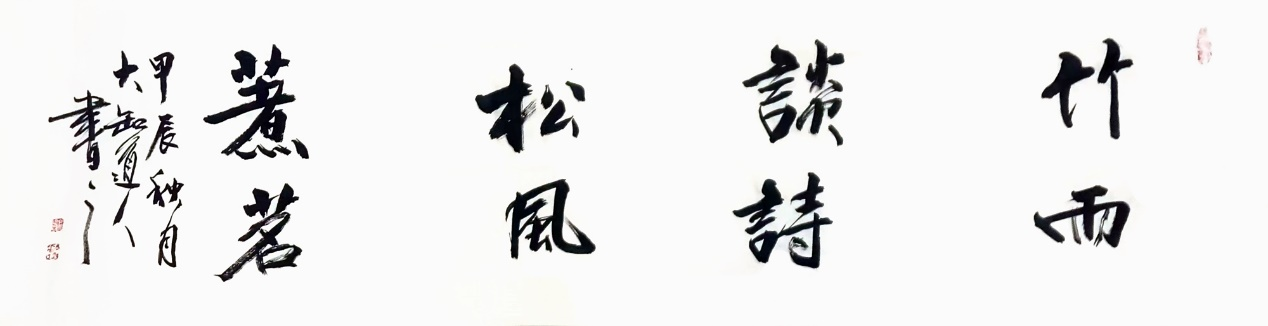 竹雨
談詩
松風
煮茗
甲辰秋月
大知道人
書之